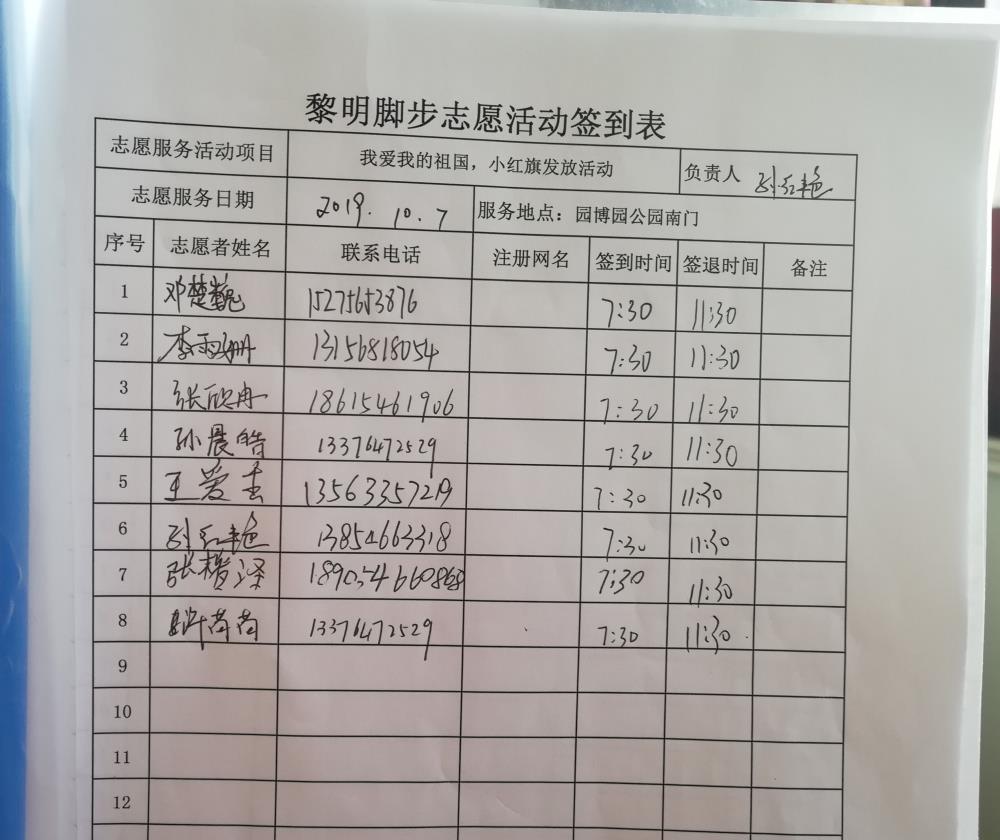 黎明脚步志愿活动签到表
志愿服务活动项目 我爱我的祖国，小红旗发放活动 负责人 刘红艳
志愿服务日期 2019.10.7 服务地点：园博园公园南门
序号 志愿者姓名 联系电话 注册网名 签到时间 签退时间 备注
1 邓楚巍 15275653876 7:30 11:30
2 李雨珊 13156818054 7:30 11:30
3 张欣冉 18615461906 7:30 11:30
4 孙晨皓 13376472529 7:30 11:30
5 王爱 13563357219 7:30 11:30
6 刘红艳 13854663318 7:30 11:30
7 张楷泽 7:30 11:30
8 芮芮 13376472529 7:30 11:30
9
10
11
12